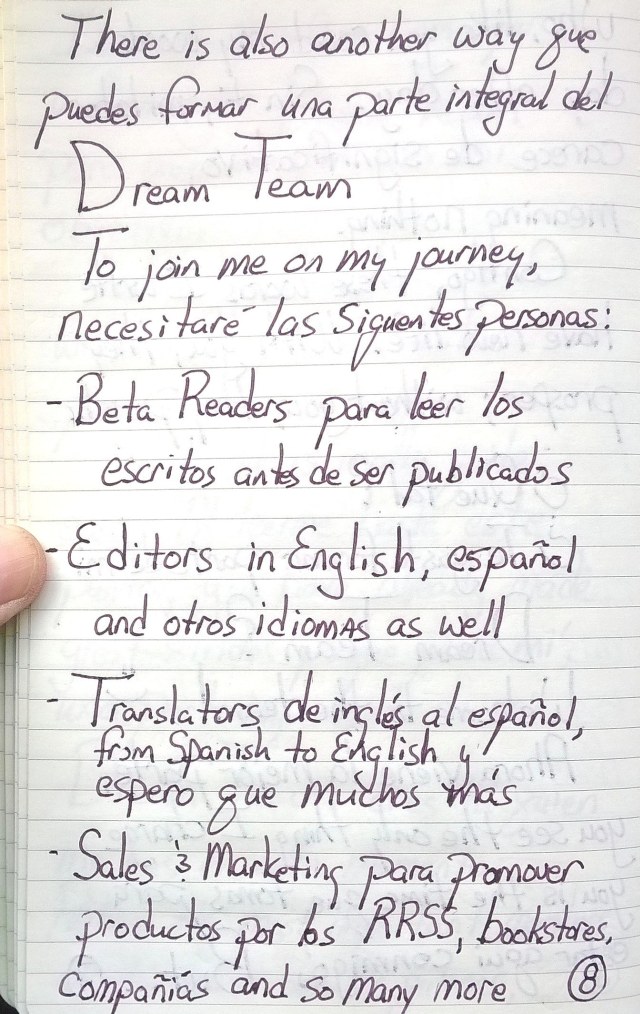 There is also another way que
puedes formar una parte integral del
Dream Team
To join me on my journey,
necesitaré las siguentes personas:
- Beta Readers para leer los
escritos antes de ser publicados
- Editors in English, español
and otros idiomas as well
- Translators de inglés al español,
from Spanish to English y
espero que muchos más
- Sales & Marketing para promover
productos por los RRSS, bookstores,
Compañiás and so many more
8